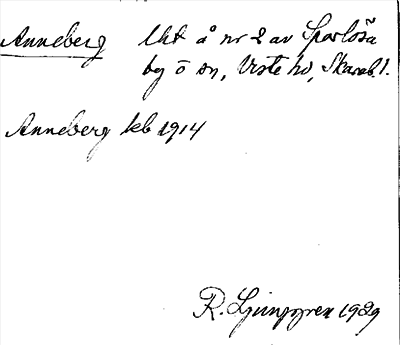 Anneberg Uht å nr 2 av Sparlösa
by o sn, Viste hd, Skarab. l.
Anneberg kb 1914
R. Ljunggren 1929